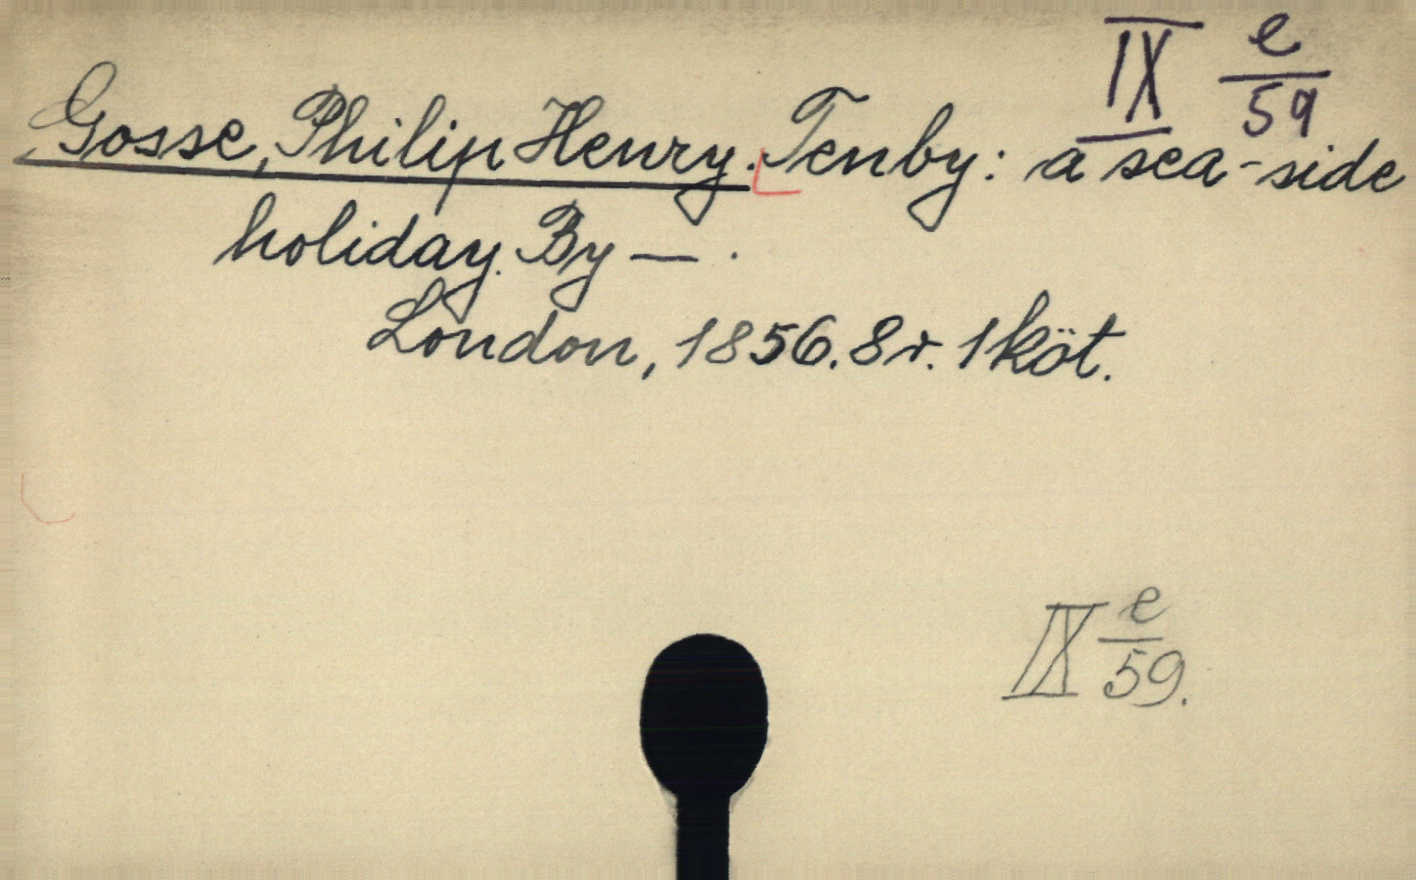 IX e/59
Gosse, Philip Henry. Tenby: a sea-side
holiday. By — .
London, 1856. 8r. 1 köt.
IX e/59.